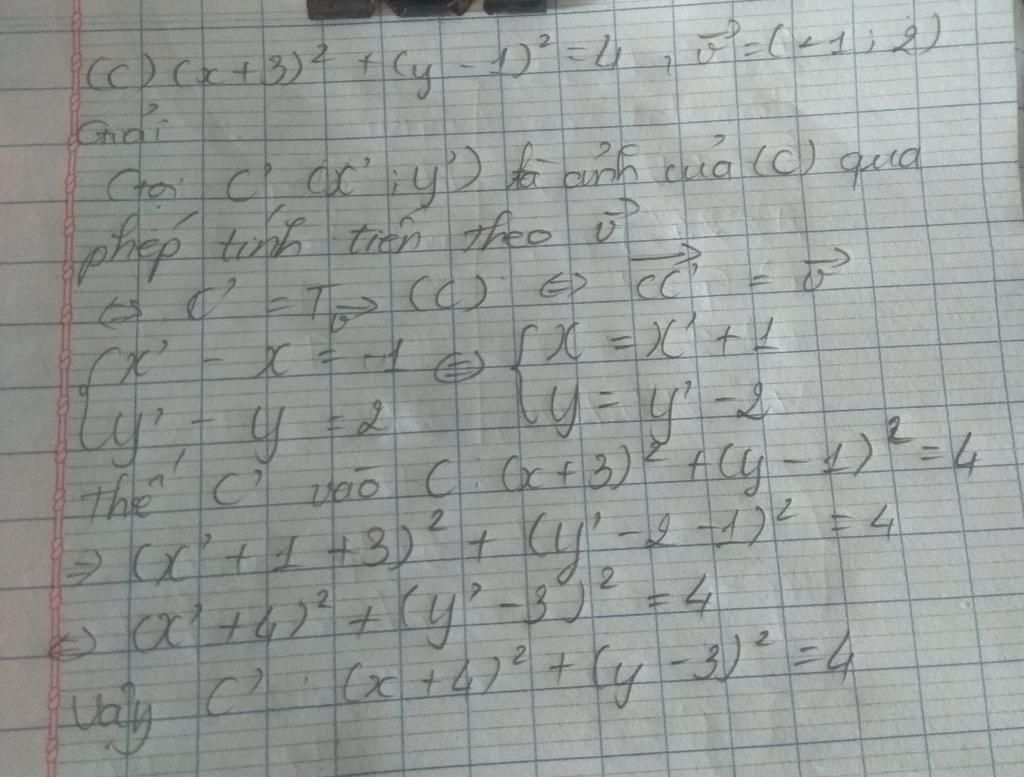 (C) (x+3)² + (y-1)² = 4, v⃗ = (-1; 2)
Giải
Gọi C' (x'; y') là ảnh của (C) qua
phép tịnh tiến theo v⃗
⇔ C' = Tv⃗ (C) ⇔ CC'⃗ = v⃗
{x' - x = -1 ⇔ {x = x' + 1
{y' - y = 2 {y = y' - 2
thế C' vào C : (x+3)² + (y-1)² = 4
⇒ (x' + 1 + 3)² + (y' - 2 - 1)² = 4
⇔ (x' + 4)² + (y' - 3)² = 4
Vậy C' : (x + 4)² + (y - 3)² = 4